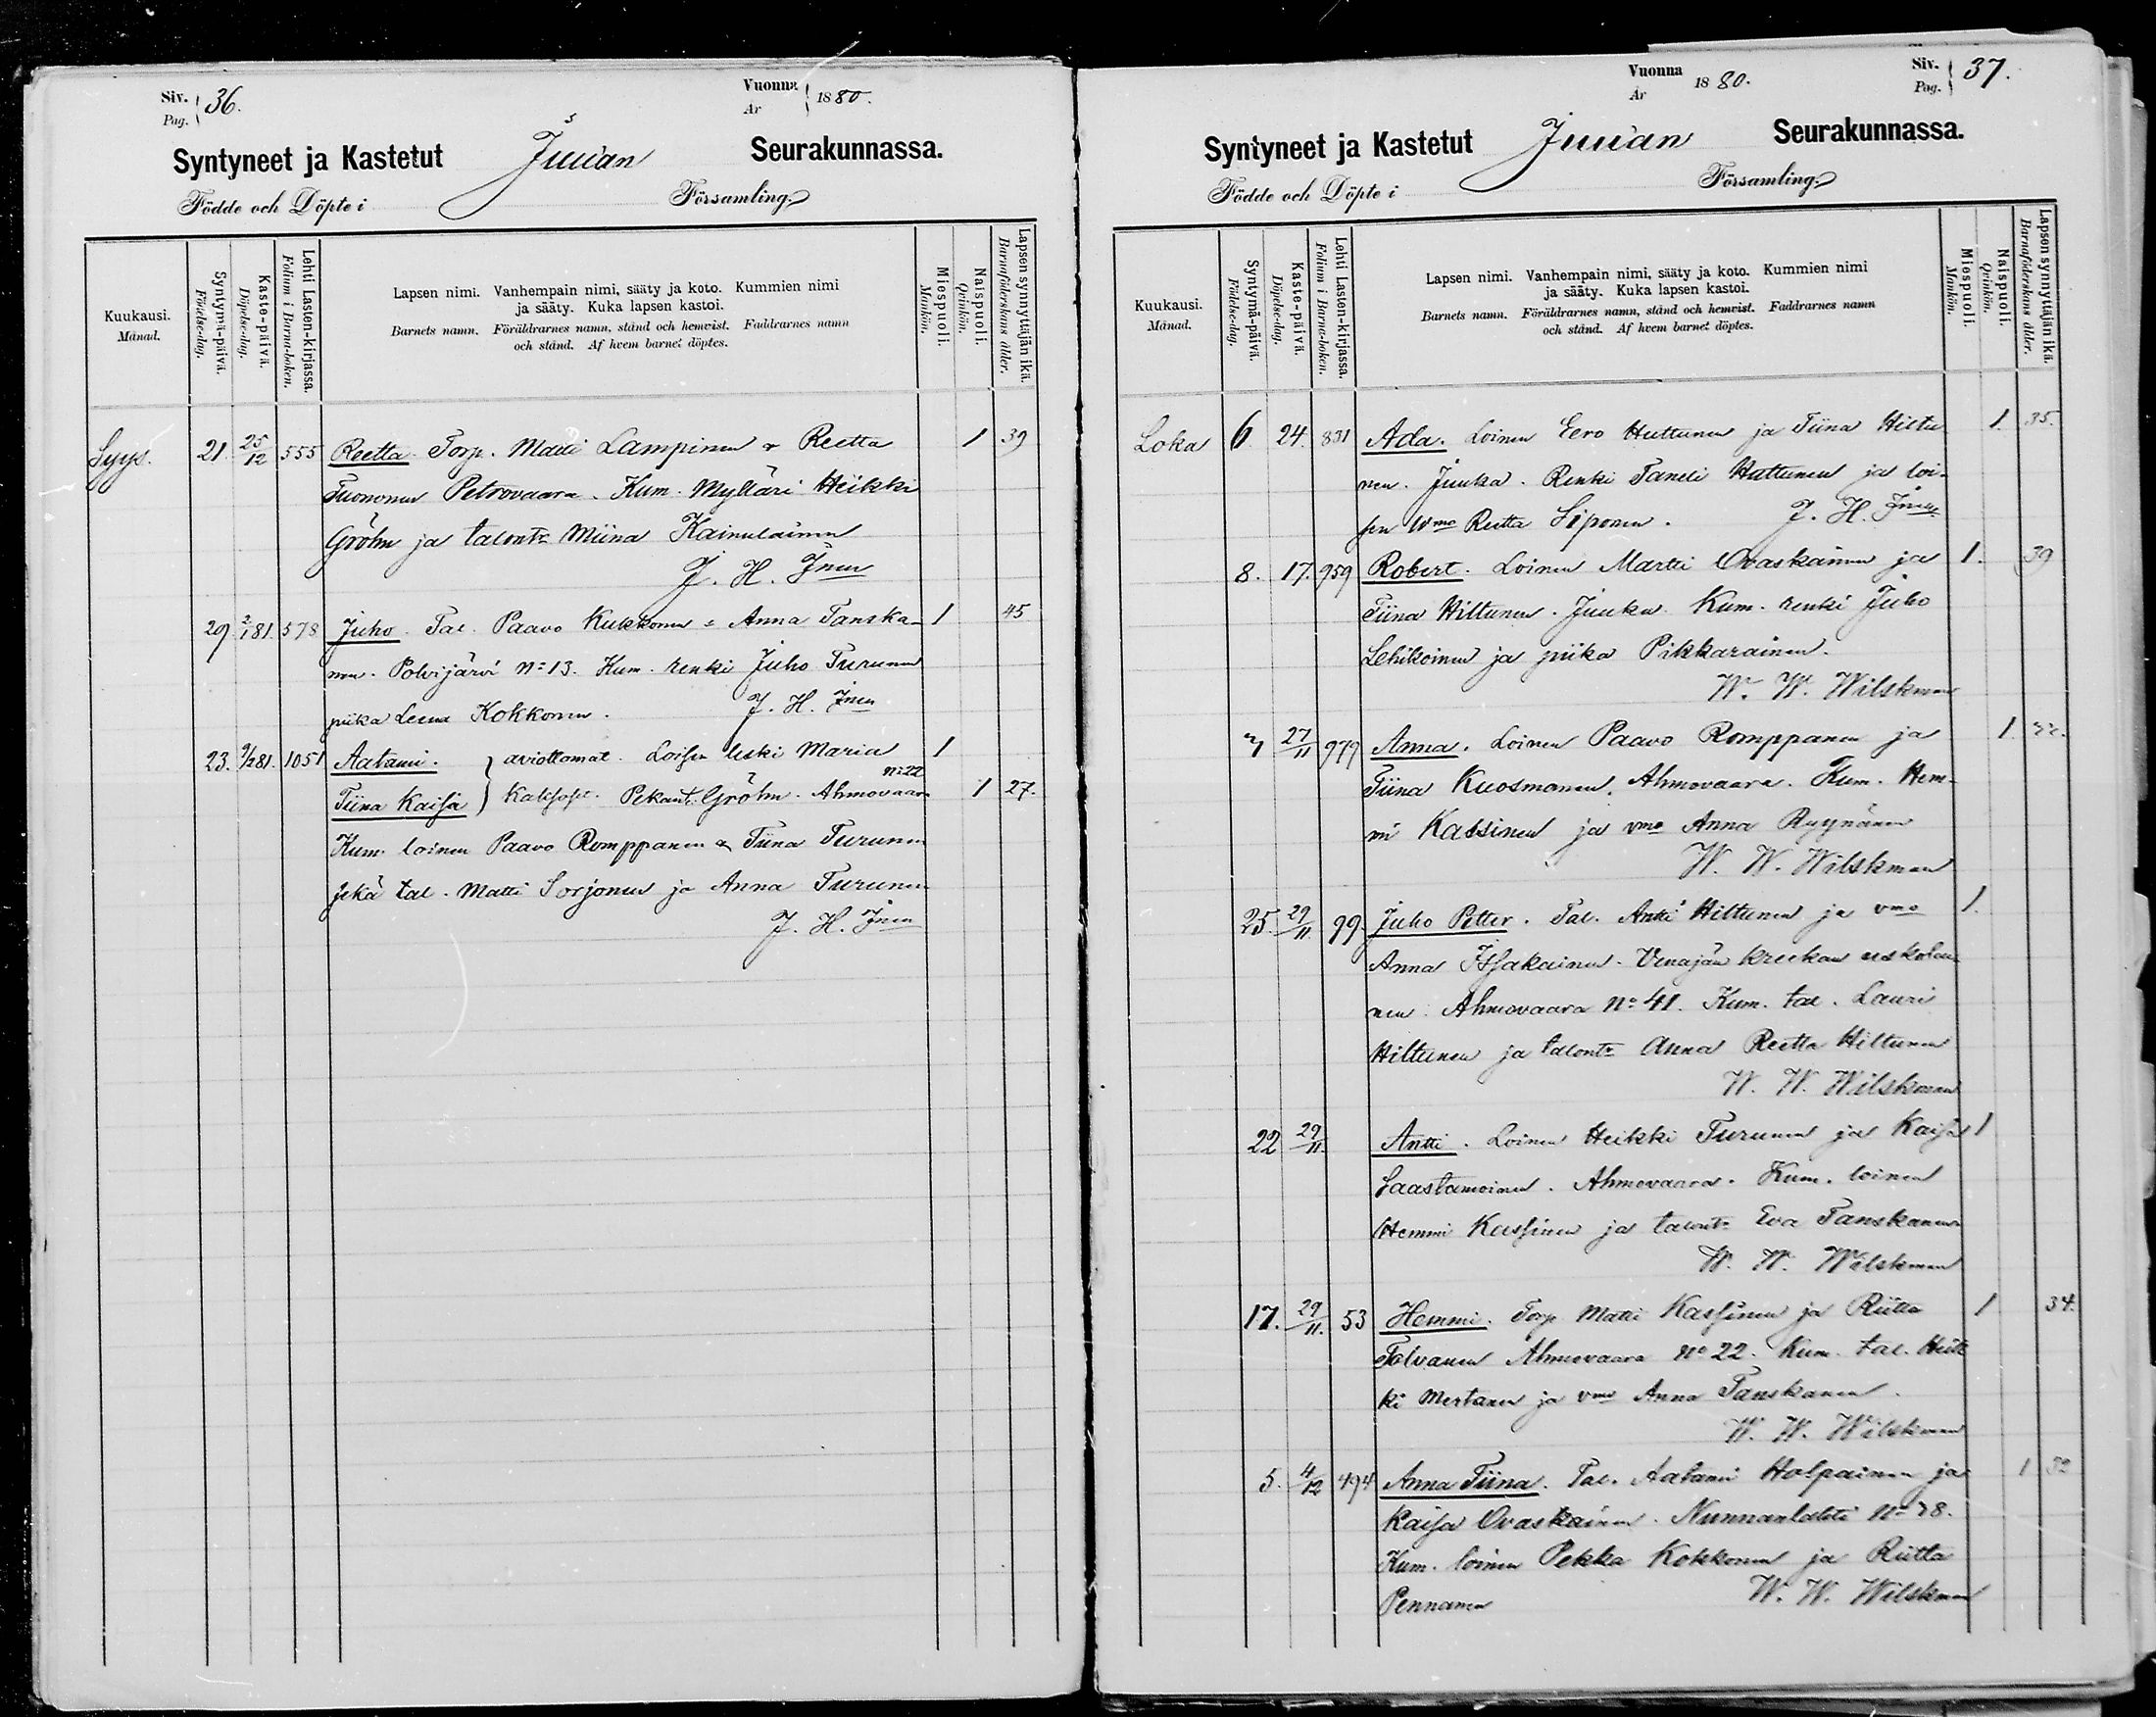 Siv. 36.
Pag.
Vuonna 1880.
År
Syntyneet ja Kastetut Juuan Seurakunnassa.
Födde och Döpte i Församling.
Kuukausi.
Månad.
Syntymä-päivä.
Födelse-dag.
Kaste-päivä.
Döpelse-dag.
Lehti Lasten-kirjassa.
Folium i Barna-boken.
Lapsen nimi. Vanhempain nimi, sääty ja koto. Kummien nimi
ja sääty. Kuka lapsen kastoi.
Barnets namn. Föräldrarnes namn, stånd och hemvist. Faddrarnes namn
och stånd. Af hvem barnet döptes.
Miespuoli.
Mankön.
Naispuoli.
Qvinkön.
Lapsen synnyttäjän ikä.
Barnaföderskans ålder.
Syys. 21. 25/12 555 Reetta. Torp. Matti Lampinen & Reetta 1 39
Tuononen Petrovaara. Kum. Mylläri Heikki
Gröhn ja talont. Miina Kainulainen
J. H.
29 2/1 81. 578 Juho. Tal. Paavo Kukkonen & Anna Tanska- 1 45
nen. Polvijärvi No 13. Kum. renki Juho Turunen
piika Leena Kokkonen. J. H.
23. 81. 1051 Aatami. aviottomat. Loisen leski Maria 1
Tiina Kaisa Gröhn. Ahmovaara No 22 1 27.
Kum. loinen Paavo Romppanen & Tiina Turunen
sekä tal. Matti Sorjonen ja Anna Turunen
J. H.
Siv. 37.
Pag.
Vuonna 1880.
År
Syntyneet ja Kastetut Juuan Seurakunnassa.
Födde och Döpte i Församling.
Kuukausi.
Månad.
Syntymä-päivä.
Födelse-dag.
Kaste-päivä.
Döpelse-dag.
Lehti Lasten-kirjassa.
Folium i Barna-boken.
Lapsen nimi. Vanhempain nimi, sääty ja koto. Kummien nimi
ja sääty. Kuka lapsen kastoi.
Barnets namn. Föräldrarnes namn, stånd och hemvist. Faddrarnes namn
och stånd. Af hvem barnet döptes.
Miespuoli.
Mankön.
Naispuoli.
Qvinkön.
Lapsen synnyttäjän ikä.
Barnaföderskans ålder.
Loka 6. 24. 831 Ada. Loinen Eero Huttunen ja Tiina Hiltu 1. 35.
nen. Juuka. Renki Taneli Huttunen ja loi-
sen vmo Reetta Siponen. J. H.
8. 17. 959 Robert. Loinen Martti Ovaskainen ja 1. 39
Tiina Hiltunen. Juuka. Kum. renki Juho
Lehikoinen ja piika Pikkarainen.
W. W. Wilskman
27/11 979 Anna. Loinen Paavo Romppanen ja 1
Tiina Kuosmanen. Ahmovaara. Kum. Hem-
mi Kassinen ja vmo Anna Ryynänen
W. W. Wilskman
25. 29/11 99. Juho Petter. Tal. Antti Hiltunen ja vmo 1.
Anna Issakainen. Venäjän kreekan uskolai
nen. Ahmovaara No 41. Kum. tal. Lauri
Hiltunen ja talont. Anna Reetta Hiltunen
W. W. Wilskman
22 29/11. Antti. Loinen Heikki Turunen ja Kaisa 1
Saastamoinen. Ahmovaara. Kum. loinen
Hemmi Kassinen ja talont. Eva Tanskanen
W. W. Wilskman
17. 29/11. 53 Hemmi. Torp. Matti Kassinen ja Riitta 1 34.
Tolvanen Ahmovaara No 22. Kum. tal. Heik
ki Mertanen ja vmo Anna Tanskanen.
W. W. Wilskman
5. 4/12 494 Anna Tiina. Tal. Aatami Holpainen ja 1 32
Kaisa Ovaskainen. Nunnanlahti No 28.
Kum. loinen Pekka Kokkonen ja Riitta
Pennanen W. W. Wilskman